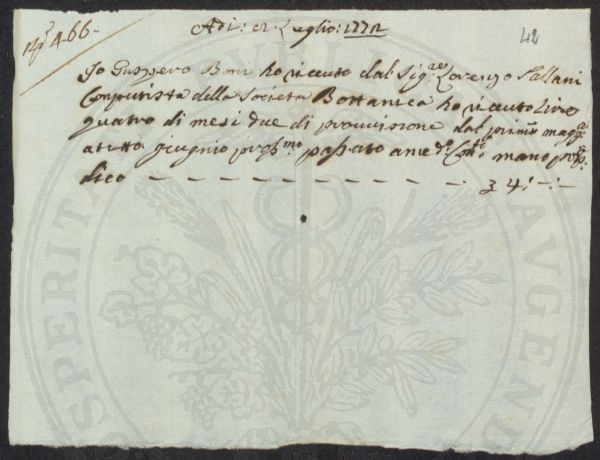 Adi: 2 Luglio: 1772
42
Io Guspero Boni ho riceuto dal Sig.re Lorenzo Fallani
Conputista della Società Bottanica ho riceuto Lire
quatro di mesi due di prouisione dal primo magg
a tutto giugnio pross.mo passato a me d. Cont.i mano prop.
dico — — — — — — — — — — 4: —: —
PROSPERITATI AUGENDAE